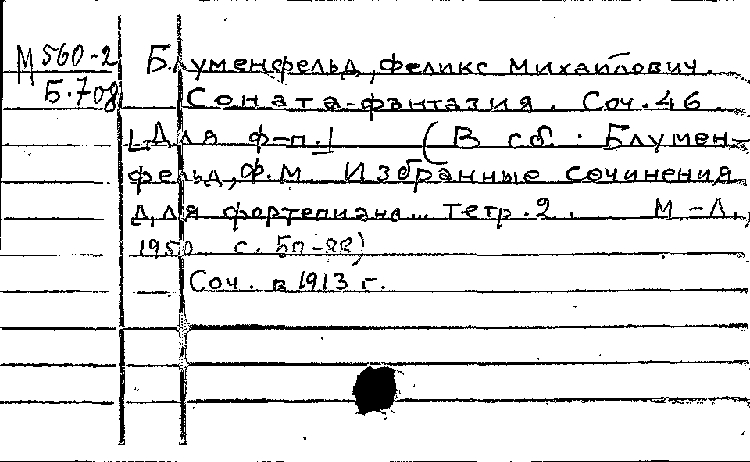 М 560-2
Б-708
Блуменфельд, Феликс Михайлович.
Соната-фантазия. Соч. 46
[Для ф-п.] (В сб.: Блумен-
фельд, Ф.М. Избранные сочинения
для фортепиано... Тетр. 2. М.-Л.,
1950 с.
Соч. в 1913 г.